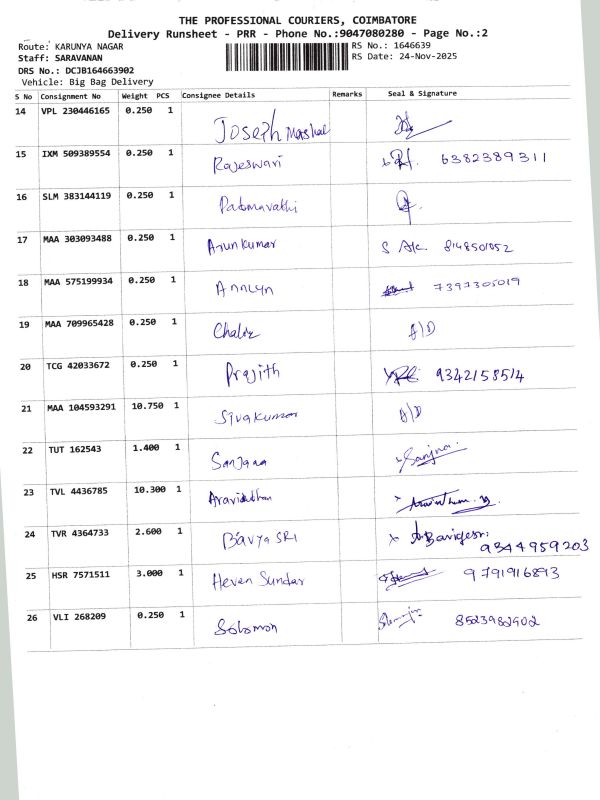 THE PROFESSIONAL COURIERS, COIMBATORE
Delivery Runsheet - PRR - Phone No.:9047080280 - Page No.:2
Route: KARUNYA NAGAR RS No.: 1646639
Staff: SARAVANAN RS Date: 24-Nov-2025
DRS No.: DCJB164663902
Vehicle: Big Bag Delivery
S No Consignment No Weight PCS Consignee Details Remarks Seal & Signature
14 VPL 230446165 0.250 1 Joseph Marshal
15 IXM 509389554 0.250 1 Rajeswari 6382389311
16 SLM 383144119 0.250 1 Padmavathi
17 MAA 303093488 0.250 1 Arunkumar 8148501052
18 MAA 575199934 0.250 1 Annlyn 7397305019
19 MAA 709965428 0.250 1 A/D
20 TCG 42033672 0.250 1 Prajith 9342158514
21 MAA 104593291 10.750 1 Sivakumar A/D
22 TUT 162543 1.400 1 Sanjana Sanjna
23 TVL 4436785 10.300 1
24 TVR 4364733 2.600 1 Bavya SRI 9344959203
25 HSR 7571511 3.000 1 Heven Sundar 9791916893
26 VLI 268209 0.250 1 Solomon 8523982902